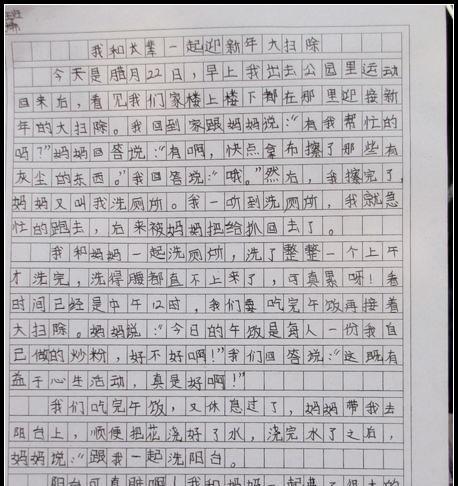 我和大辈一起迎新年大扫除
今天是腊月22日，早上我出去公园里运动
回来后，看见我们家楼上楼下都在那里迎接新
年的大扫除。我回到家跟妈妈说：“有我帮忙的
吗？”妈妈回答说：“有啊，快点拿布擦了那些有
灰尘的东西。”我回答说：“哦。”然后，我擦完了，
妈妈又叫我洗厕所。我一听到洗厕所，我就急
忙的跑去，后来被妈妈把给抓回去了。
我和妈妈一起洗厕所，洗了整整一个上午
才洗完，洗得腰都直不上来了，可真累呀！看
时间已经是中午12时，我们要吃完午饭再接着
大扫除。妈妈说：“今日的午饭是每人一份我自
己做的炒粉，好不好啊！”我们回答说：“这既有
益于心生活动，真是好啊！”
我们吃完午饭，又休息过了，妈妈带我去
阳台上，顺便把花浇好了水，浇完水了之后，
妈妈说：“跟我一起洗阳台。
阳台可真脏啊！我和妈妈一起